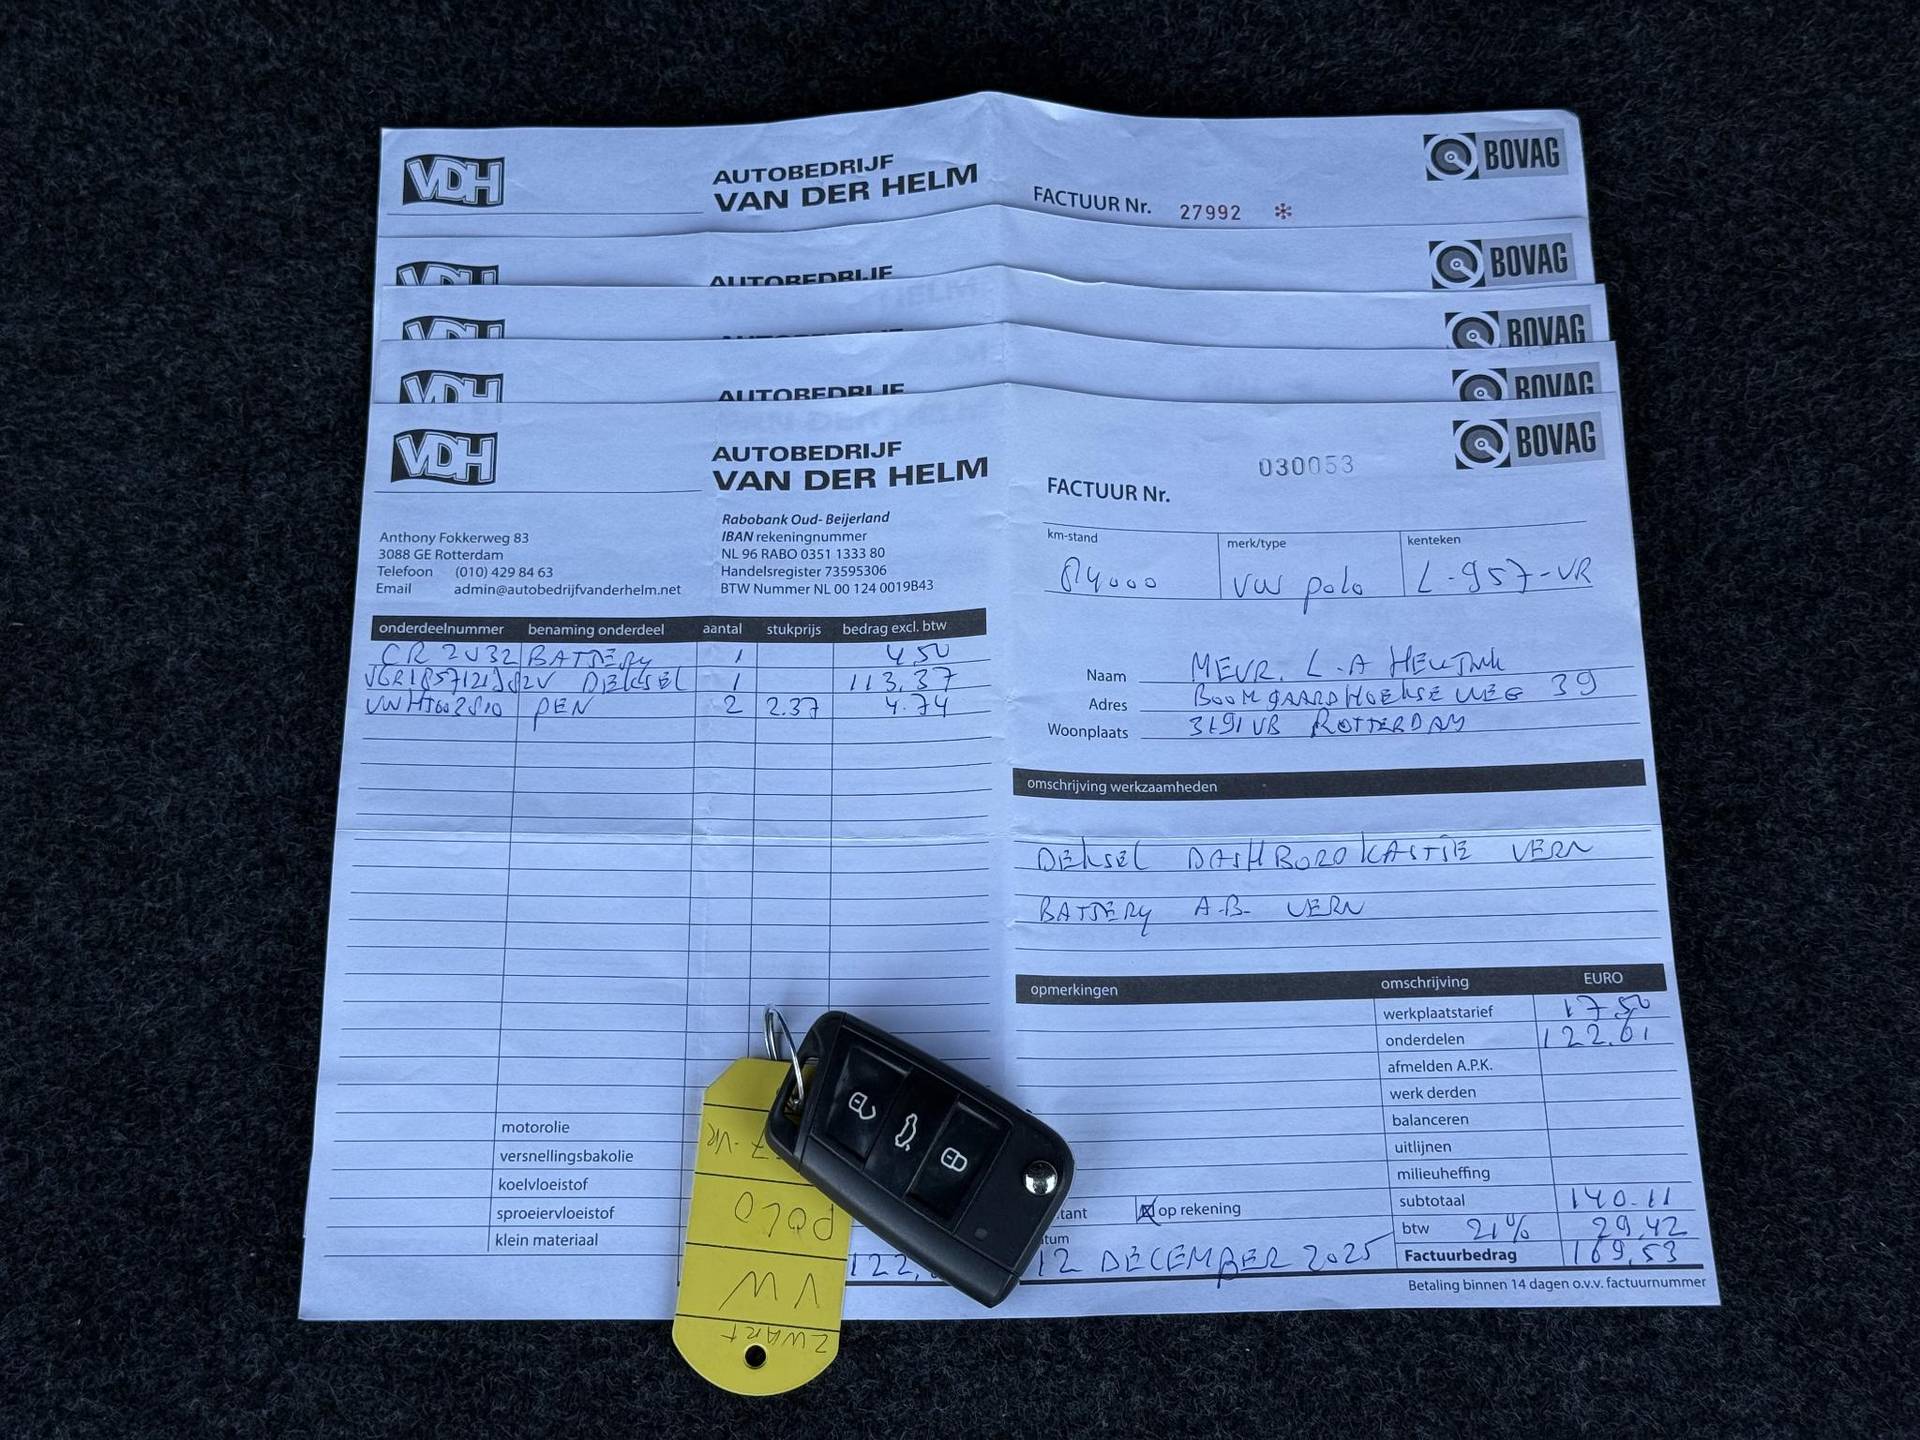 VDH
AUTOBEDRIJF
VAN DER HELM
FACTUUR Nr. 27992 *
BOVAG
VDH
AUTOBEDRIJF
BOVAG
VDH
AUTOBEDRIJF
BOVAG
VDH
AUTOBEDRIJF
BOVAG
VDH
AUTOBEDRIJF
VAN DER HELM
FACTUUR Nr.
030053
BOVAG
Anthony Fokkerweg 83
3088 GE Rotterdam
Telefoon (010) 429 84 63
Email admin@autobedrijfvanderhelm.net
Rabobank Oud- Beijerland
IBAN rekeningnummer
NL 96 RABO 0351 1333 80
Handelsregister 73595306
BTW Nummer NL 00 124 0019B43
km-stand merk/type kenteken
84000 VW polo L-957-VR
Naam MEVR. L.A
Adres BOOMGAARDHOEKSEWEG 39
Woonplaats 3191 VB ROTTERDAM
onderdeelnummer benaming onderdeel aantal stukprijs bedrag excl. btw
CR 2032 BATTERY 1 4,50
DEKSEL 1 113,37
PEN 2 2.37 4.74
omschrijving werkzaamheden
DEKSEL DASHBORDKASTJE VERN
BATTERY A.B. VERN
opmerkingen omschrijving EURO
werkplaatstarief 17,50
onderdelen 122.61
afmelden A.P.K.
werk derden
balanceren
uitlijnen
milieuheffing
subtotaal 140.11
btw 21% 29,42
Factuurbedrag 169,53
Betaling binnen 14 dagen o.v.v. factuurnummer
motorolie
versnellingsbakolie
koelvloeistof
sproeiervloeistof
klein materiaal
122,
tant op rekening
tum
12 DECEMBER 2025
7-VR
POLO
VW
ZWART